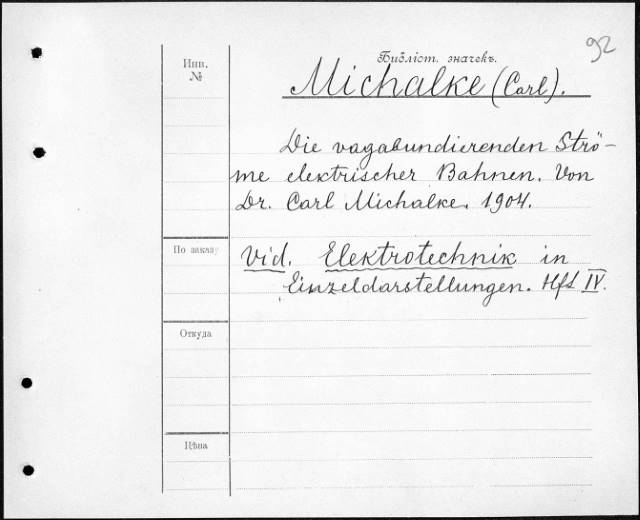 92
Библіот. значекъ.
Инв.
№
Michalke (Carl).
Die vagabundierenden Strö-
me elektrischer Bahnen. Von
Dr. Carl Michalke. 1904.
По заказу
Vid. Elektrotechnik in
Einzeldarstellungen. Hft IV.
Откуда
Цѣна